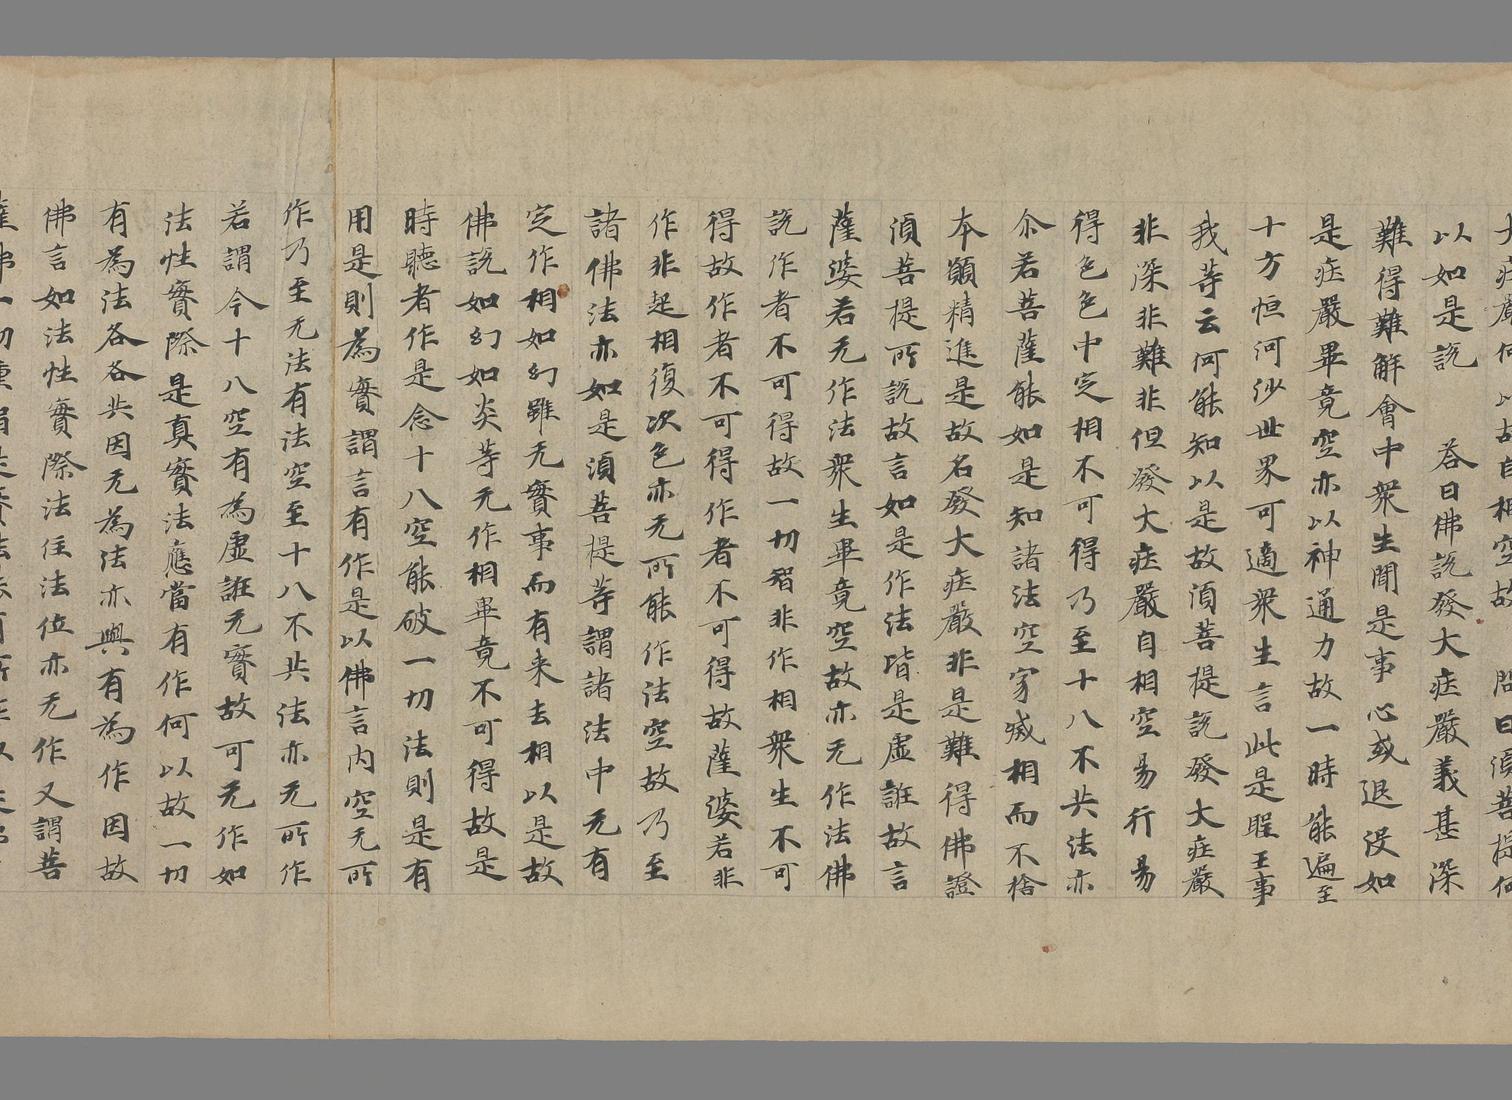 大庄嚴何以故自相空故　問曰湏菩提何
以如是説　荅曰佛説發大庄嚴義甚深
難得難解會中衆生聞是事心或退没如
是庄嚴畢竟空亦以神通力故一時能遍至
十方恒河沙世界可適衆生言此是聖王事
我等云何能知以是故湏菩提説發大庄嚴
非深非難非但發大庄嚴自相空易行易
得色色中定相不可得乃至十八不共法亦
尒若菩薩能如是知諸法空寂滅相而不捨
本願精進是故名發大庄嚴非是難得佛證
湏菩提所説故言如是作法皆是虛誑故言
薩婆若无作法衆生畢竟空故亦无作法佛
説作者不可得故一切智非作相衆生不可
得故作者不可得作者不可得故薩婆若非
作非起相復次色亦无所能作法空故乃至
諸佛法亦如是湏菩提等謂諸法中无有
定作相如幻雖无實事而有来去相以是故
佛説如幻如炎等无作相畢竟不可得故是
時聽者作是念十八空能破一切法則是有
用是則為實謂言有作是以佛言内空无所
作乃至无法有法空至十八不共法亦无所作
若謂今十八空有為虛誑无實故可无作如
法性實際是真實法應當有作何以故一切
有為法各各共因无為法亦與有為作因故
佛言如法性實際法住法位亦无作又謂菩